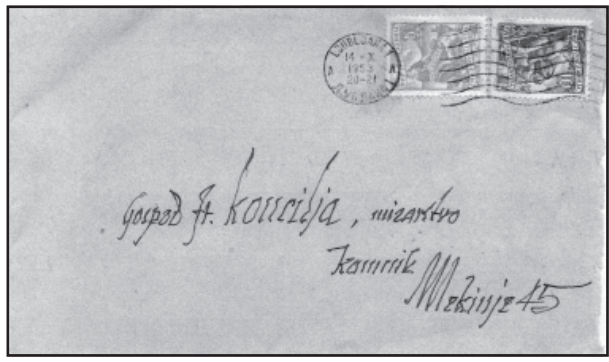 LJUBLJANA 1
14 - X
1953
20-21
A A
Gospod Fr. Koncilja, mizarstvo
Kamnik
Mekinje 45